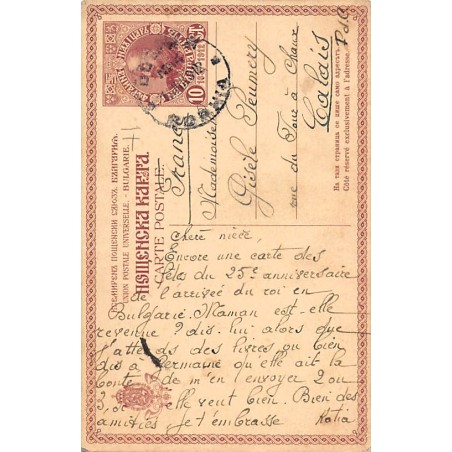 ВСЕМИРНА ПОЩЕНСКИ СЪЮЗЪ · БЪЛГАРИЯ.
UNION POSTALE UNIVERSELLE · BULGARIE.
ПОЩЕНСКА КАРТА.
CARTE POSTALE.
10
1887-1912
France
Mademoiselle
Gisèle
rue du Four à Chaux
Calais
P.d.C
На тая страница се пише само адресътъ.
Côté réservé exclusivement à l'adresse.
Chère nièce,
Encore une carte des
fêtes du 25e anniversaire
de l'arrivée du roi en
Bulgarie. Maman est-elle
revenue ? dis-lui alors que
j'attends des livres ou bien
dis à Germaine qu'elle ait la
bonté de m'en envoyer 2 ou
3, si elle veut bien. Bien des
amitiés je t'embrasse Katia